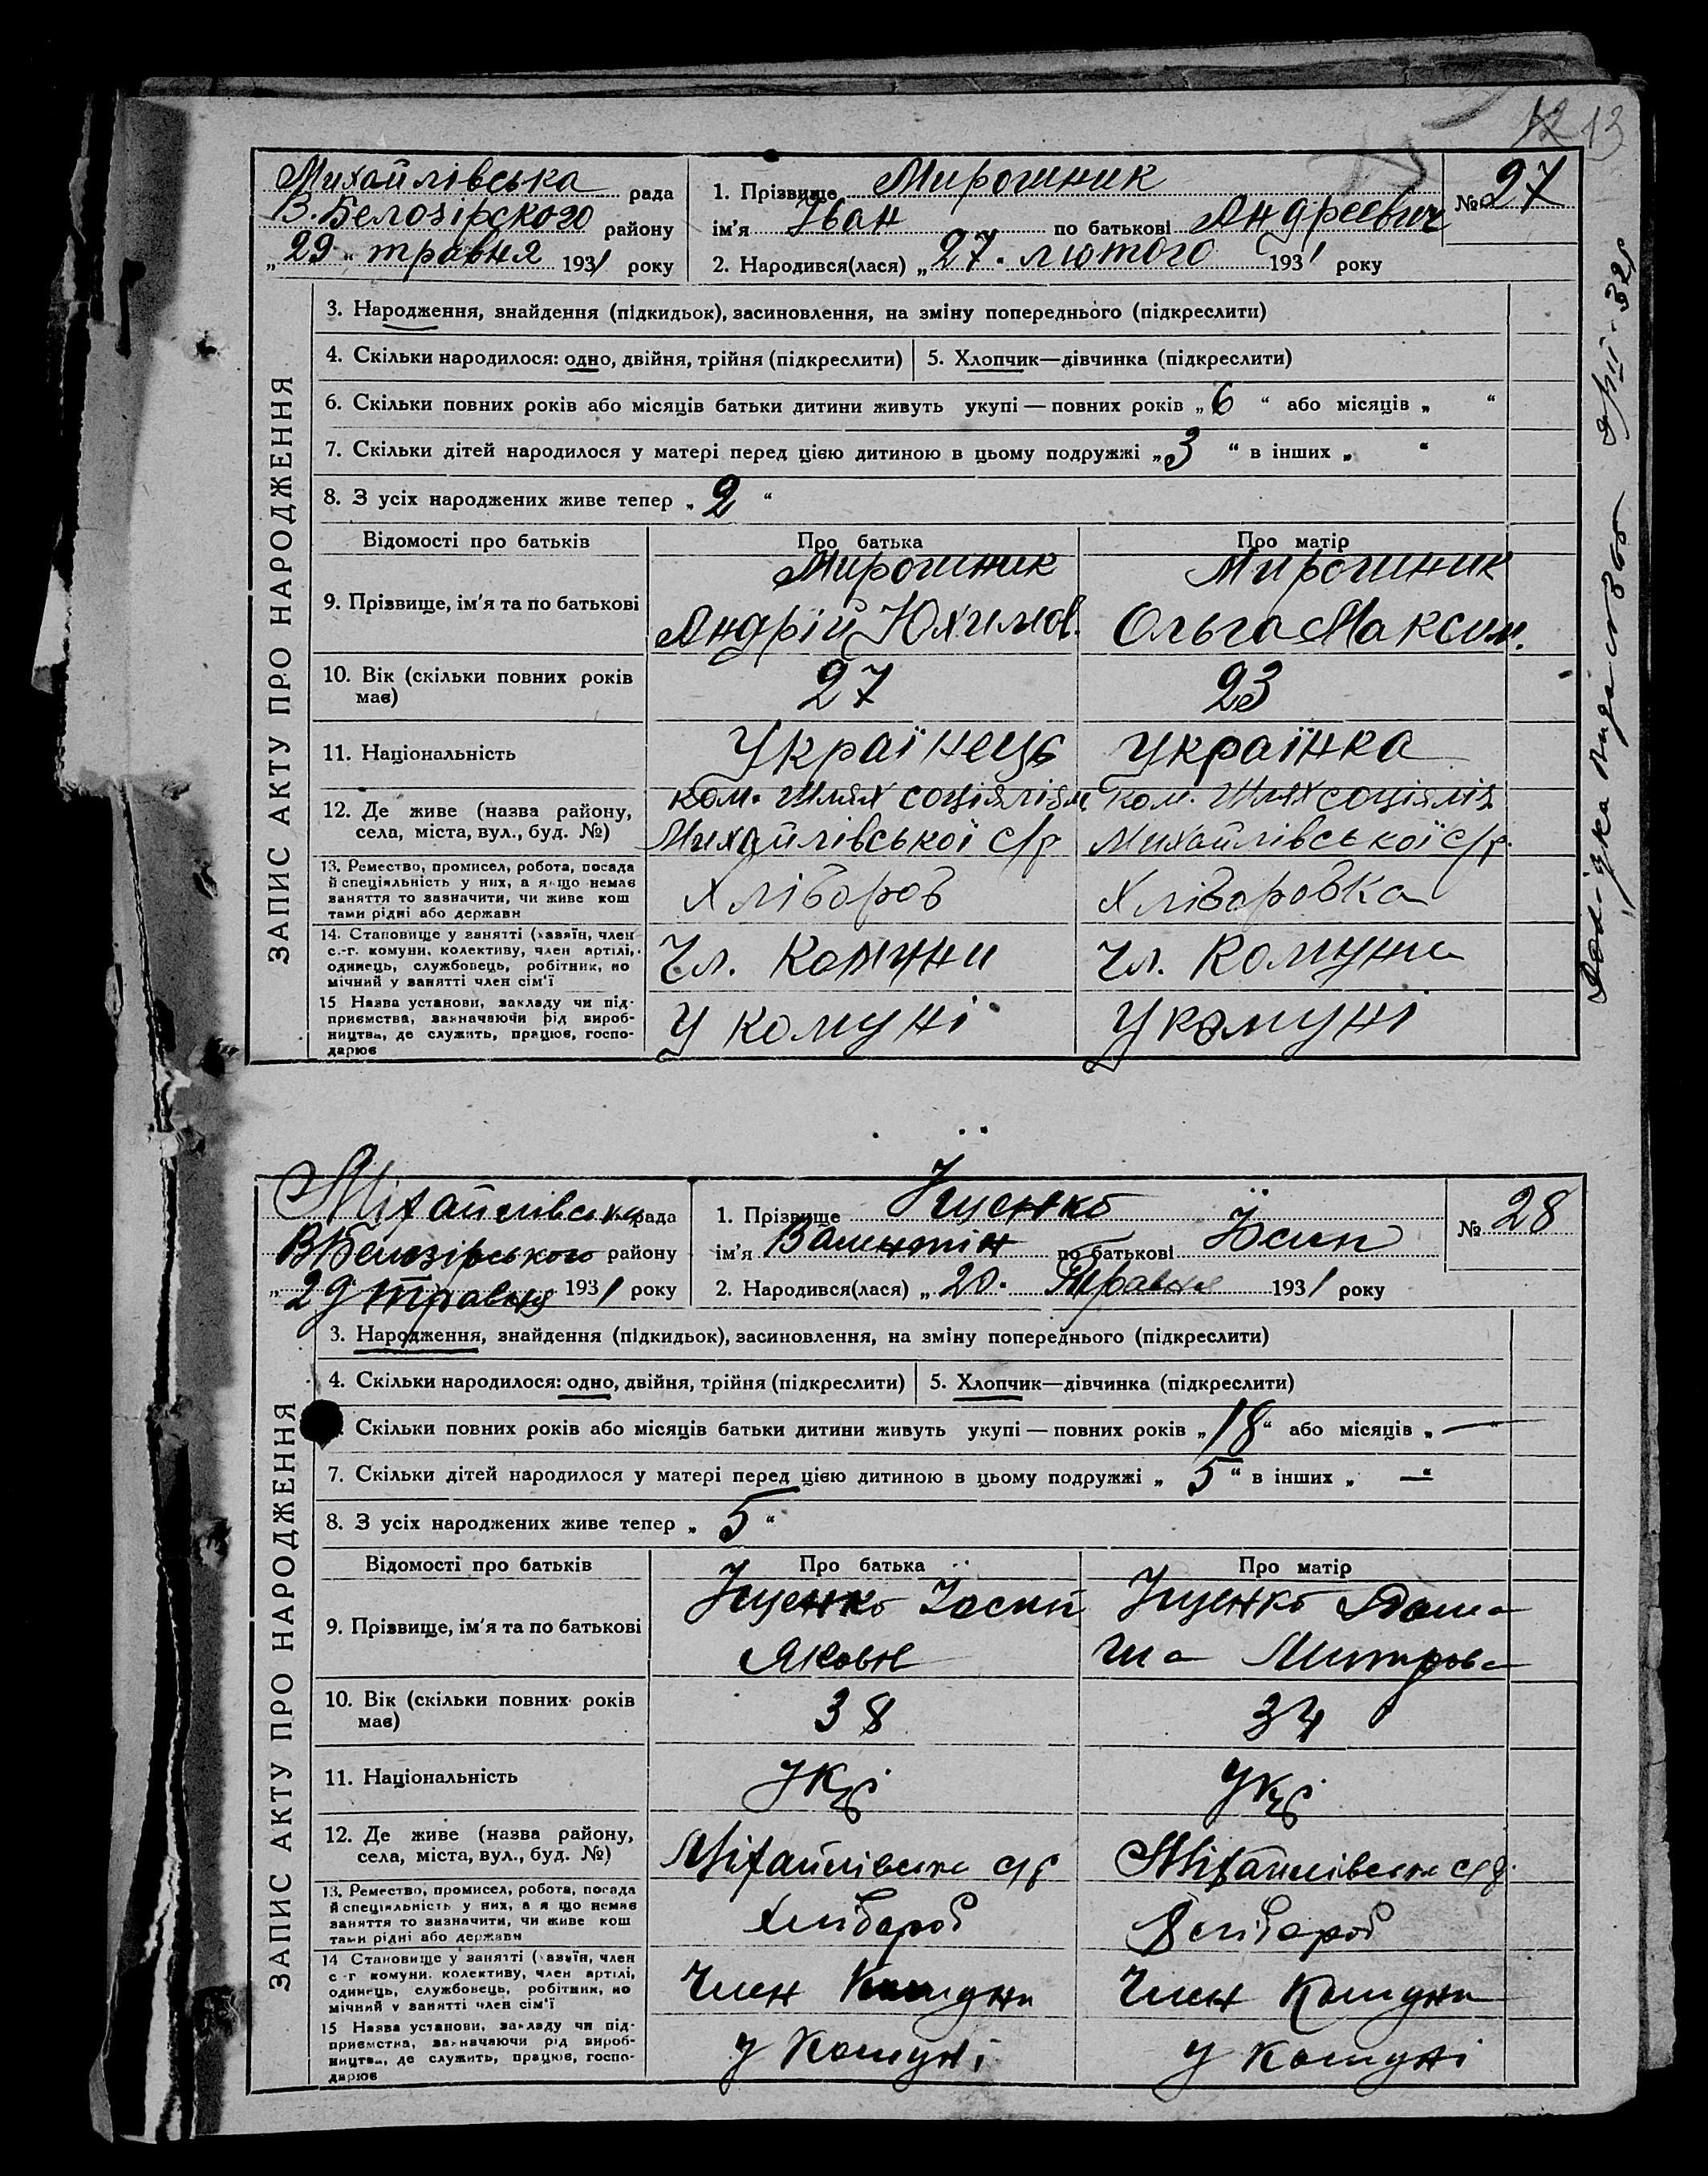 12 13
Михайлівська рада
В. Белозірского району
„ 29 “ травня 1931 року
1. Прізвище Мирошник
ім'я Іван по батькові Андреевич
2. Народився(лася) „ 27. лютого 1931 року
№ 27
ЗАПИС АКТУ ПРО НАРОДЖЕННЯ
3. Народження, знайдення (підкидьок), засиновлення, на зміну попереднього (підкреслити)
4. Скільки народилося: одно, двійня, трійня (підкреслити)
5. Хлопчик—дівчинка (підкреслити)
6. Скільки повних років або місяців батьки дитини живуть укупі — повних років „ 6 “ або місяців „ “
7. Скільки дітей народилося у матері перед цією дитиною в цьому подружжі „ 3 “ в інших „ “
8. З усіх народжених живе тепер „ 2 “
Відомості про батьків Про батька Про матір
9. Прізвище, ім'я та по батькові
Мирошник
Андрій Юхимов.
Мирошник
Ольга Максим.
10. Вік (скільки повних років має)
27
23
11. Національність
Українець
Українка
12. Де живе (назва району,
села, міста, вул., буд. №)
ком. Шлях соціялізм
Михайлівської с/р
ком. Шлях соціяліз
Михайлівської с/р.
13. Ремество, промисел, робота, посада
й спеціяльність у них, а якщо немає
заняття то зазначити, чи живе кош
тами рідні або держави
Хлібороб
Хліборобка
14. Становище у занятті (хазяїн, член
с.-г. комуни, колективу, член артілі,
одинець, службовець, робітник, по
мічний у занятті член сім'ї
Чл. Комуни
Чл. Комуни
15 Назва установи, закладу чи під-
приємства, зазначаючи рід вироб-
ництва, де служить, працює, госпо-
дарює
У комуні
У комуні
Міхайлівська рада
В Белозірського району
„ 29 травня 1931 року
1. Прізвище Іщенко
ім'я Валентін по батькові Йосип
2. Народився(лася) „ 20. Травня 1931 року
№ 28
ЗАПИС АКТУ ПРО НАРОДЖЕННЯ
3. Народження, знайдення (підкидьок), засиновлення, на зміну попереднього (підкреслити)
4. Скільки народилося: одно, двійня, трійня (підкреслити)
5. Хлопчик—дівчинка (підкреслити)
Скільки повних років або місяців батьки дитини живуть укупі — повних років „ 18 “ або місяців „ — “
7. Скільки дітей народилося у матері перед цією дитиною в цьому подружжі „ 5 “ в інших „ — “
8. З усіх народжених живе тепер „ 5 “
Відомості про батьків Про батька Про матір
9. Прізвище, ім'я та по батькові
Іщенко
Яковл
Іщенко
Митрова
10. Вік (скільки повних років має)
38
34
11. Національність
Укр
Укр
12. Де живе (назва району,
села, міста, вул., буд. №)
Міхайлівська с/р
Міхайлівська с/р.
13. Ремество, промисел, робота, посада
й спеціяльність у них, а я що немає
заняття то зазначити, чи живе кош
тами рідні або держави
Хлібороб
Хлібороб
14 Становище у занятті (хазяїн, член
с-г комуни, колективу, член артілі,
одинець, службовець, робітник, по
мічний у занятті член сім'ї
Член Комуни
Член Комуни
15 Назва установи, закладу чи під-
приємства, зазначаючи рід вироб-
ництва, де служить, працює, госпо-
дарює
У Комуні
У Комуні